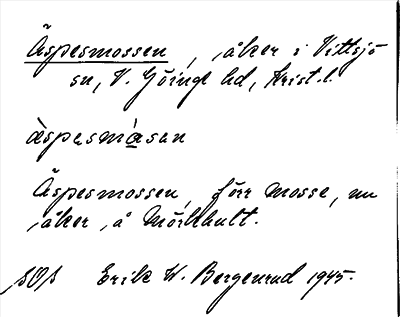 Äspesmossen, åker i Vittsjö
sn, V. Göinge hd, Krist. l.
äspasmåsan
Äspesmossen, förr mosse, nu
åker, å Mörkhult.
SOS Erik W. Bergenrud 1945.